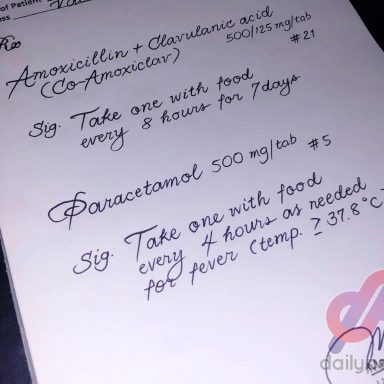 of Patient
ess
Rx
Amoxicillin + Clavulanic acid
(Co-Amoxiclav) 500/125 mg/tab
#21
Sig. Take one with food
every 8 hours for 7 days
Paracetamol 500 mg/tab #5
Sig. Take one with food
every 4 hours as needed
for fever (temp. ≥ 37.8 °C
dailyp